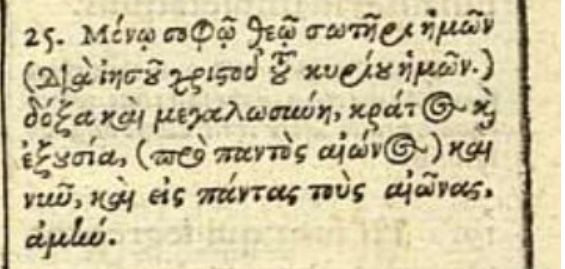 25. Μόνῳ σοφῷ θεῷ σωτῆρι ἡμῶν
(Διὰ ἰησοῦ χριστοῦ τοῦ κυρίου ἡμῶν.)
δόξα καὶ μεγαλωσύνη, κράτος καὶ
ἐξουσία, (πρὸ παντὸς αἰῶνος) καὶ
νῦν, καὶ εἰς πάντας τοὺς αἰῶνας,
ἀμήν.